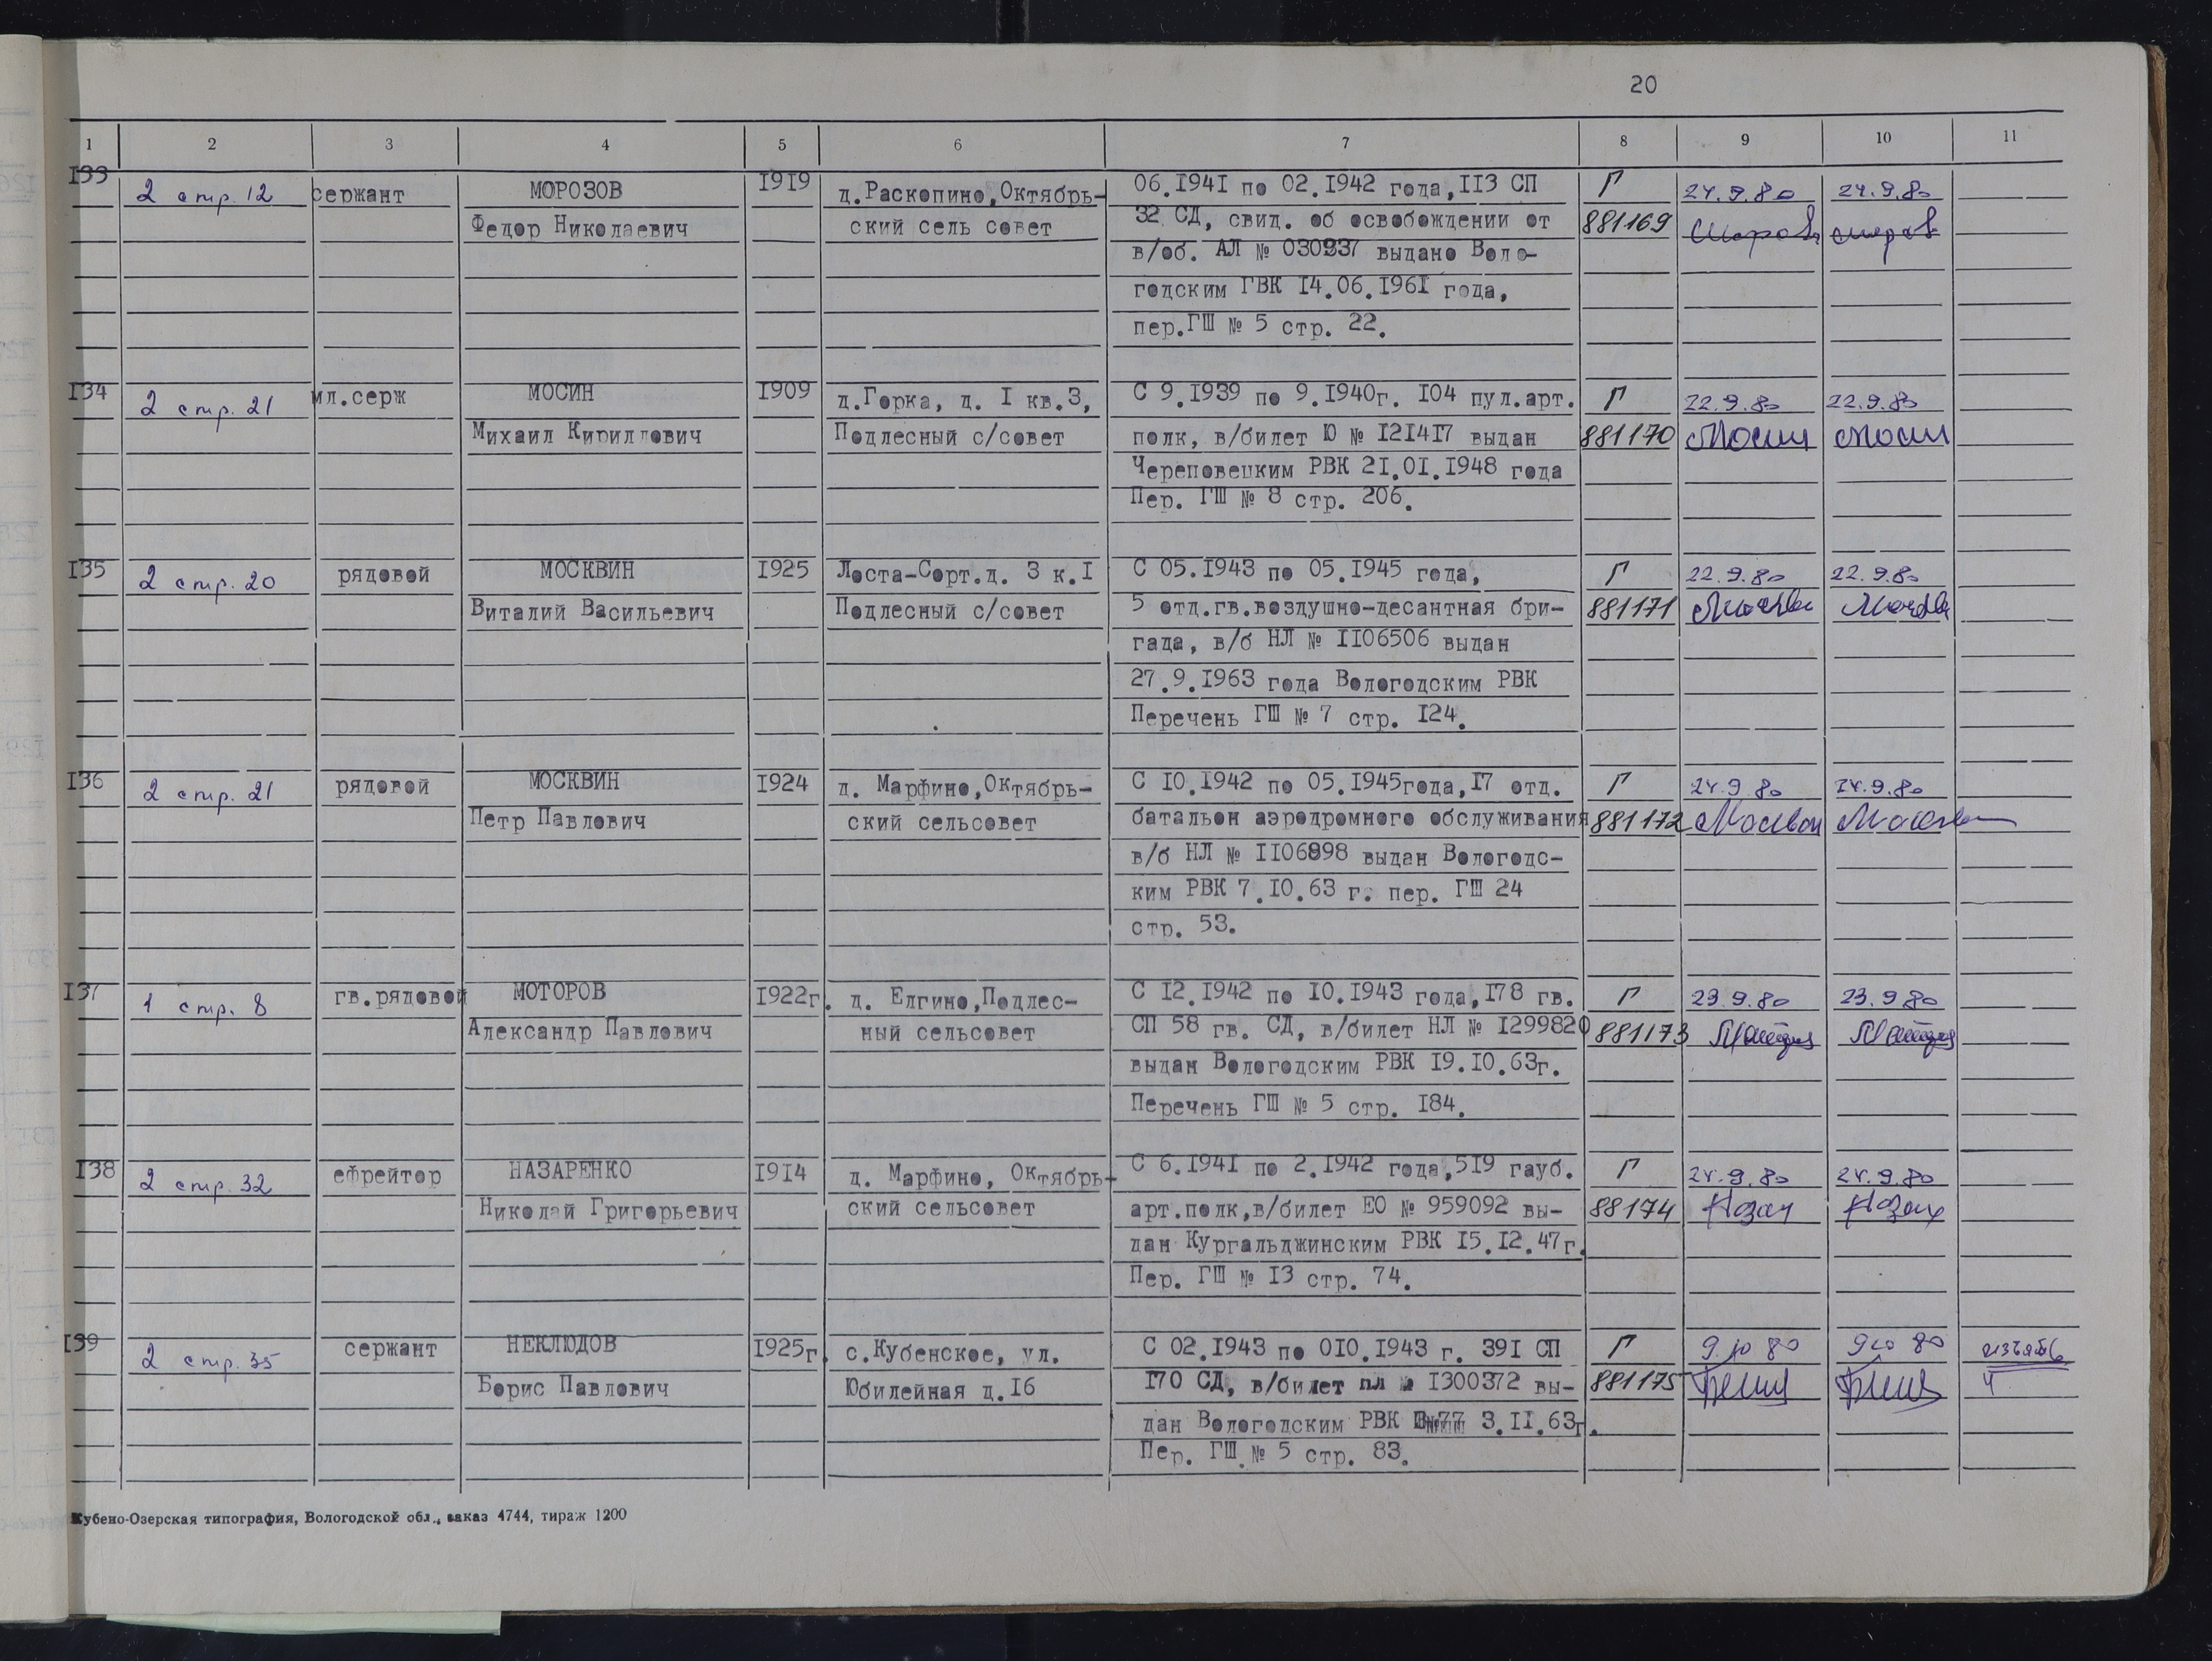 20
1 2 3 4 5 6 7 8 9 10 11
133 2 стр. 12 сержант МОРОЗОВ 1919 д.Раскопино,Октябрь- 06.1941 по 02.1942 года,113 СП Г 24.9.80 24.9.80
Федор Николаевич ский сель совет 32 СД, свид. об освобождении от 881169
в/об. АЛ № 030937 выдано Воло-
годским ГВК 14.06.1961 года,
пер.ГШ № 5 стр. 22.
134 2 стр. 21 мл.серж МОСИН 1909 д.Горка, д. 1 кв.3, С 9.1939 по 9.1940г. 104 пул.арт. Г 22.9.80 22.9.80
Михаил Кириллович Подлесный с/совет полк, в/билет Ю № 121417 выдан 881170 Мосин Мосин
Череповецким РВК 21.01.1948 года
Пер. ГШ № 8 стр. 206.
135 2 стр. 20 рядовой МОСКВИН 1925 Лоста-Сорт.д. 3 к.1 С 05.1943 по 05.1945 года, Г 22.9.80 22.9.80
Виталий Васильевич Подлесный с/совет 5 отд.гв.воздушно-десантная бри- 881171
гада, в/б НЛ № 1106506 выдан
27.9.1963 года Вологодским РВК
Перечень ГШ № 7 стр. 124.
136 2 стр. 21 рядовой МОСКВИН 1924 д. Марфино,Октябрь- С 10.1942 по 05.1945года,17 отд. Г 24.9 80 24.9.80
Петр Павлович ский сельсовет батальон аэродромного обслуживания 881172
в/б НЛ № 1106898 выдан Вологодс-
ким РВК 7.10.63 г. пер. ГШ 24
стр. 53.
137 1 стр. 8 гв.рядовой МОТОРОВ 1922г. д. Елгино,Подлес- С 12.1942 по 10.1943 года,178 гв. Г 23.9.80 23.9 80
Александр Павлович ный сельсовет СП 58 гв. СД, в/билет НЛ № 1299820 881173
выдан Вологодским РВК 19.10.63г.
Перечень ГШ № 5 стр. 184.
138 2 стр. 32 ефрейтор НАЗАРЕНКО 1914 д. Марфино, Октябрь- С 6.1941 по 2.1942 года,519 гауб. Г 24.9.80 24.9.80
Николай Григорьевич ский сельсовет арт.полк,в/билет ЕО № 959092 вы- 88174
дан Кургальджинским РВК 15.12.47г.
Пер. ГШ № 13 стр. 74.
139 2 стр. 35 сержант НЕКЛЮДОВ 1925г. с.Кубенское, ул. С 02.1943 по 010.1943 г. 391 СП Г 9.10 80 9 10 80
Борис Павлович Юбилейная д.16 170 СД, в/билет нл 1300372 вы- 881175
дан Вологодским РВК 3.11.63г.
Пер. ГШ № 5 стр. 83.
Кубено-Озерская типография, Вологодской обл., заказ 4744, тираж 1200